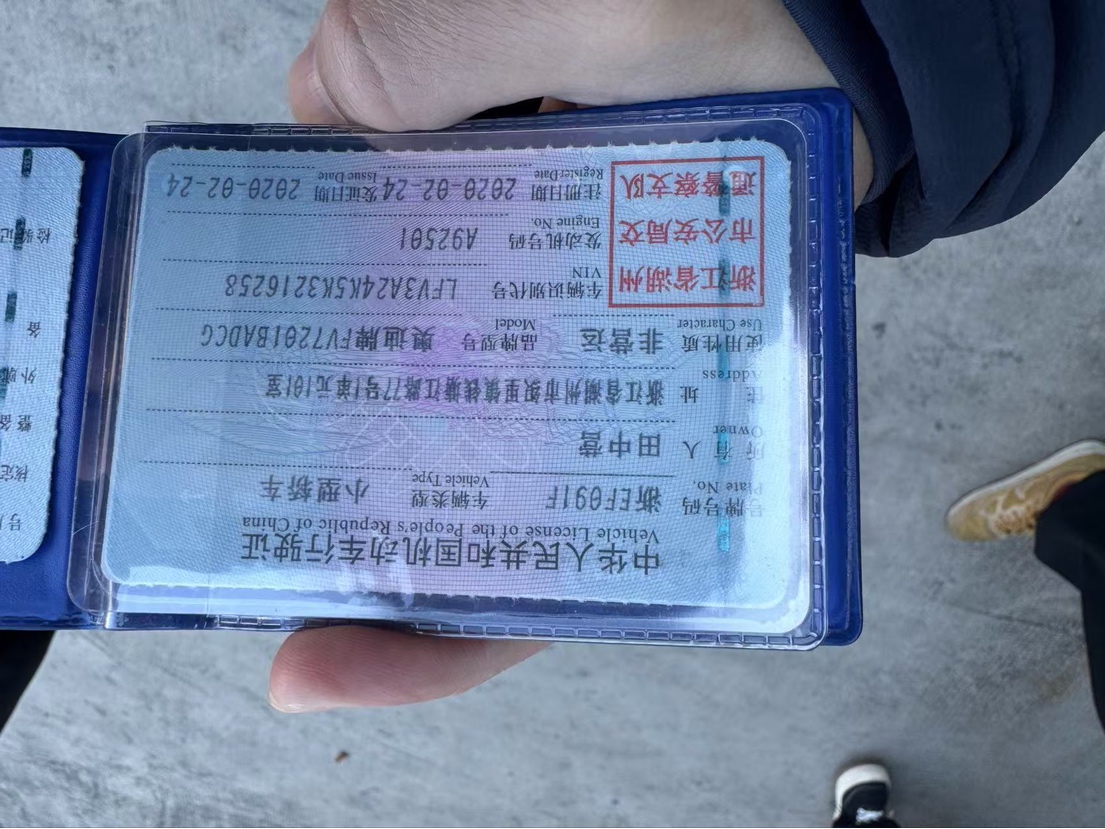 中华人民共和国机动车行驶证
Vehicle License of the People's Republic of China
号牌号码 浙EF091F 车辆类型 小型轿车
Plate No. Vehicle Type
所有人 田中营
Owner
住址 浙江省湖州市织里镇钱塘江路77号1单元101室
Address
使用性质 非营运 品牌型号 奥迪牌FV7201BADCG
Use Character Model
浙江省湖州
市公安局交
通警察支队
车辆识别代号 LFV3A24K5K3216258
VIN
发动机号码 A92501
Engine No.
注册日期 2020-02-24 发证日期 2020-02-24
Register Date Issue Date
号
核定
整备
外廓
备
检验记